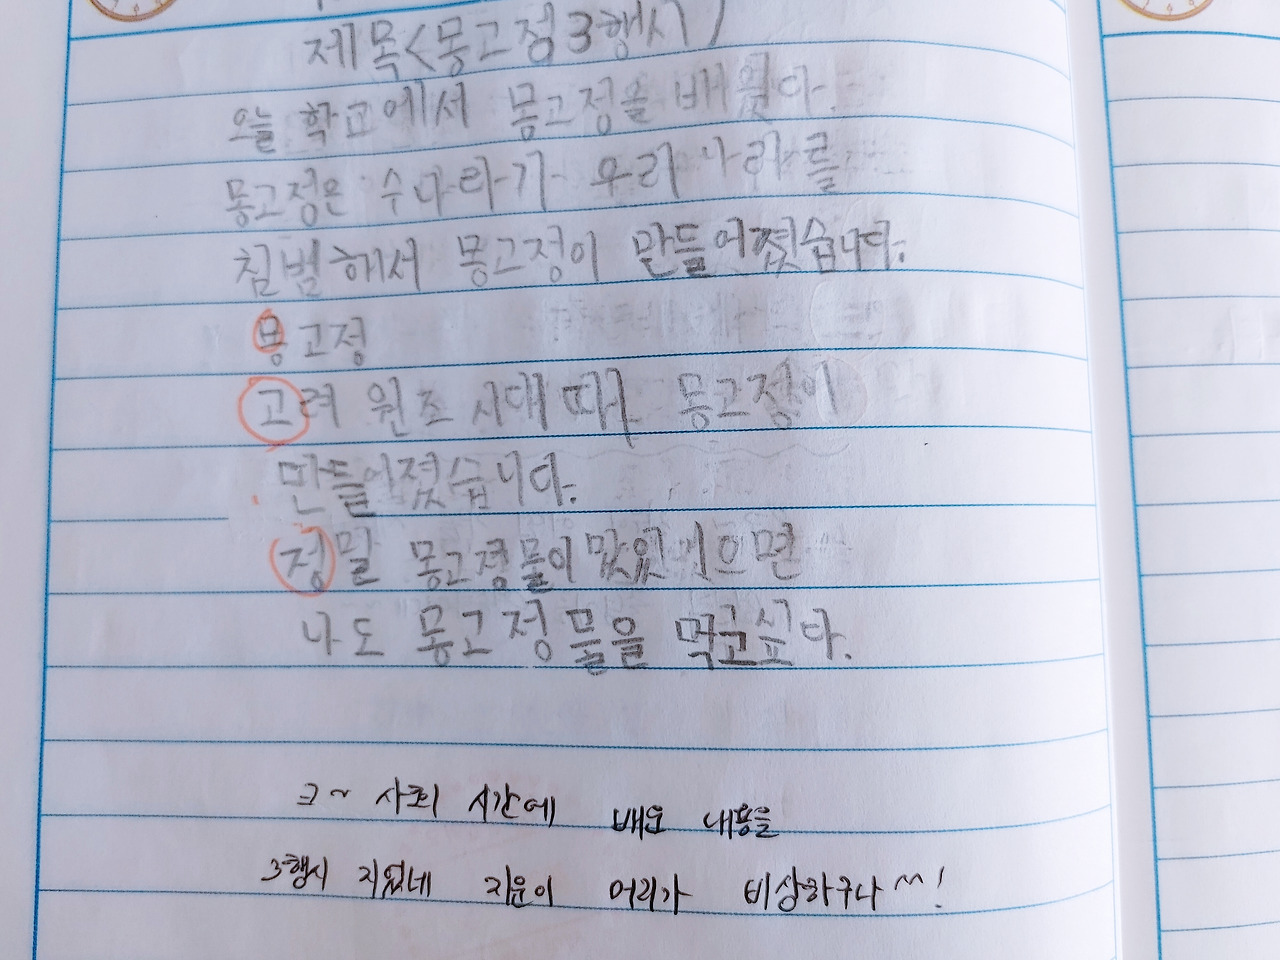 제목<몽고정3행시>
오늘 학교에서 몽고정을 배웠다.
몽고정은 수나라가 우리나라를
침벌해서 몽고정이 만들어졌습니다.
몽고정
고려 원조 시대 때 몽고정이
만들어졌습니다.
정말 몽고정물이 맜있기으면
나도 몽고정 물을 먹고싶다.
크~ 사회 시간에 배운 내용을
3행시 지었네 지운이 머리가 비상하구나^^!